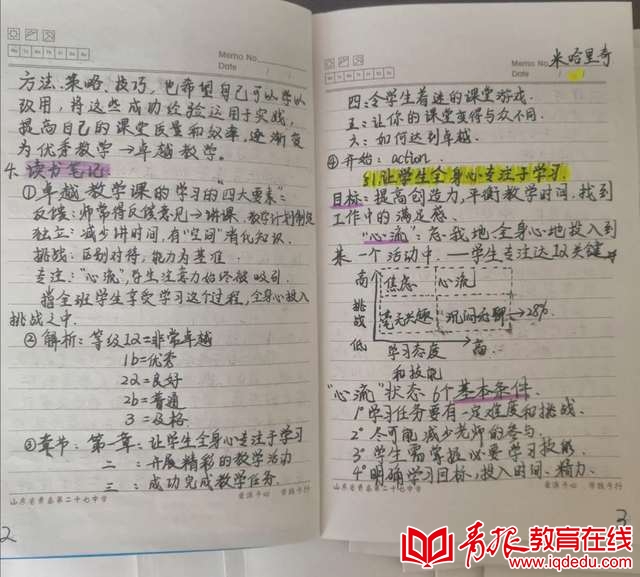 Memo No.
Date
方法、策略、技巧，也希望自己可以学以
致用，将这些成功经验运用于实践，
提高自己的课堂质量和效率，逐渐变
为优秀教学→卓越教学。
4. 读书笔记
①卓越教学课的学习的“四大要素”：
反馈：师常得反馈意见→讲课、教学计划制定
独立：减少讲时间，有“空间”消化知识.
挑战：区别对待，能力为基准.
专注：“心流”，学生注意力始终被吸引.
指全班学生享受学习这个过程，全身心投入
挑战之中.
②解析：等级1a=非常卓越
1b=优秀
2a=良好
2b=普通
3=及格
③章节：第一章：让学生全身心专注于学习
二：开展精彩的教学活动
三：成功完成教学任务.
山东省青岛第二十七中学
爱满于心 学践于行
2
Memo No. 米哈里奇
Date
四：令学生着迷的课堂游戏.
五：让你的课堂变得与众不同.
六：如何达到卓越.
④开始：action.
§1 让学生全身心专注于学习.
目标：提高创造力，平衡教学时间，找到
工作中的满足感.
“心流”：忘我地、全身心地投入到
某一个活动中.——学生专注达1a关键
高
焦虑 心流
挑战
毫无兴趣 沉闷无聊→28%
低 学习态度 高
和技能
“心流”状态 6个基本条件.
1°学习任务要有一定难度和挑战.
2°尽可能减少老师的参与.
3°学生需掌握必要学习技能.
4°明确学习目标，投入时间、精力.
山东省青岛第二十七中学
爱满于心 学践于行
3
青报教育在线
www.iqdedu.com